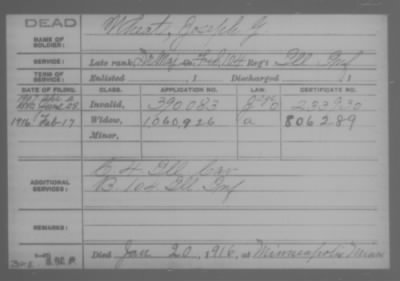 DEAD
NAME OF SOLDIER: Wheat, Joseph G
SERVICE: Late rank, F&S, 104 Reg't Ill Inf
TERM OF SERVICE: Enlisted , 1 Discharged , 1
DATE OF FILING. CLASS. APPLICATION NO. LAW. CERTIFICATE NO.
Invalid, 390.083 253930
1916 Feb-17 Widow, 1060,926 a 806289
Minor,
ADDITIONAL SERVICES: C. 4 Ill Cav
B. 104 Ill Inf
REMARKS:
Died Jan 20, 1916, at Minneapolis Minn